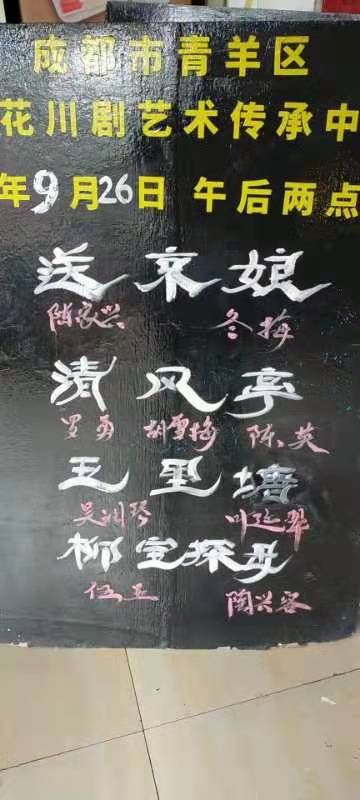 成都市青羊区
花川剧艺术传承中
年9月26日 午后两点
送亲娘
陈家兴 冬梅
清风亭
罗勇 胡雪梅 陈英
五里塘
吴训琴 叶延翠
柳宝探母
伍玉 陶兴容